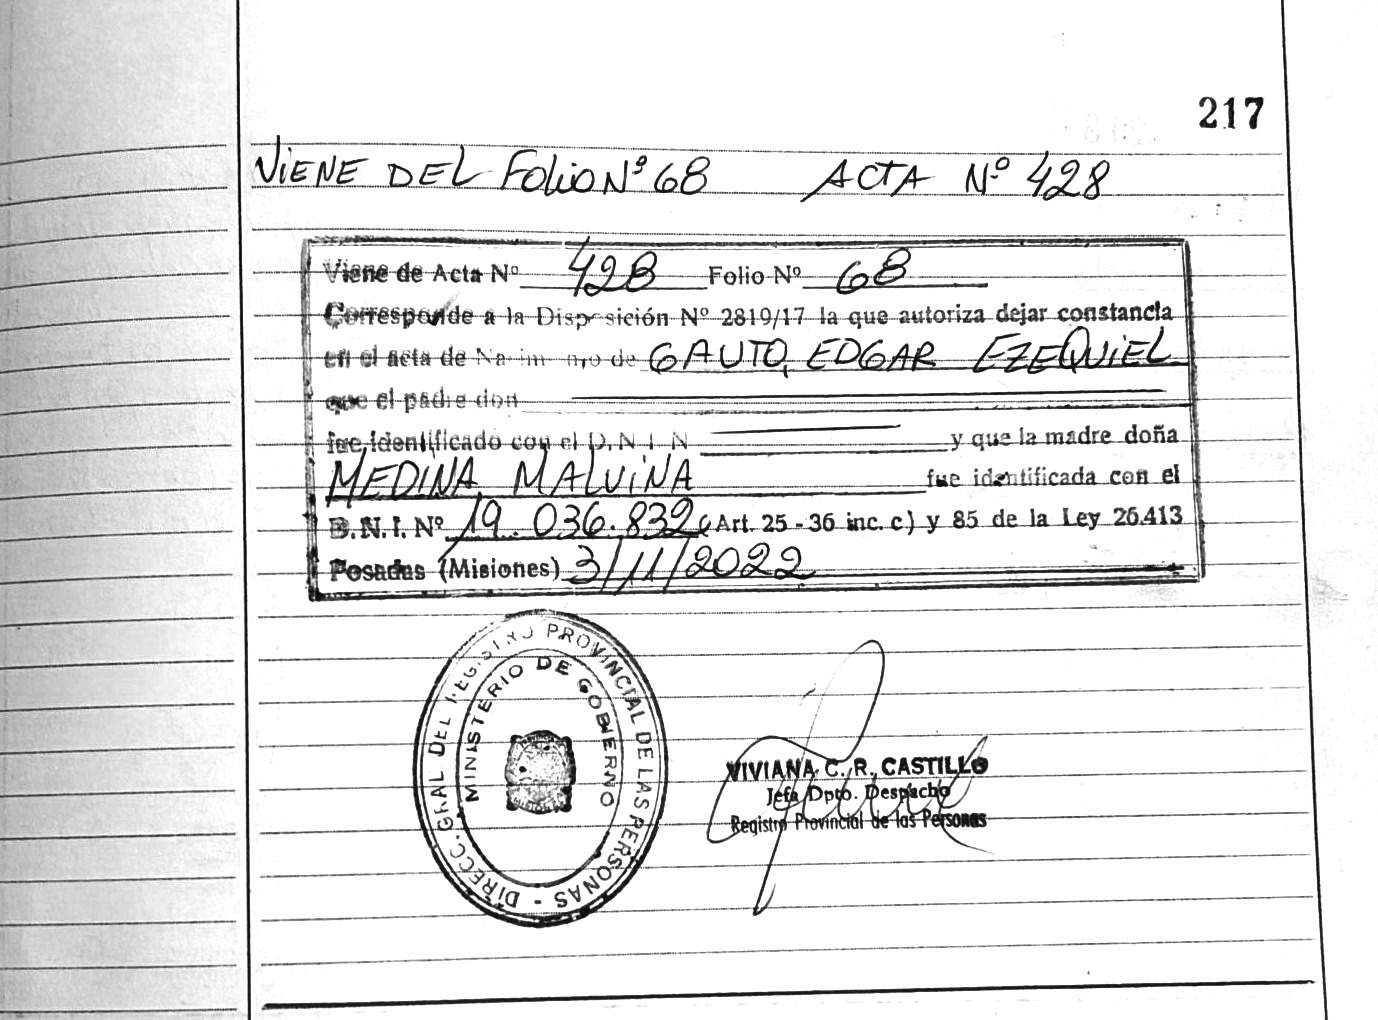 217
VIENE DEL FOLIO Nº 68 ACTA Nº 428
Viene de Acta Nº 428 Folio Nº 68
Corresponde a la Disposición Nº 2819/17 la que autoriza dejar constancia
en el acta de Nacimiento de GAUTO, EDGAR EZEQUIEL
que el padre don
fue identificado con el D.N.I. N y que la madre doña
MEDINA MALVINA fue identificada con el
D.N.I. Nº 19.036.832 (Art. 25 - 36 inc. c) y 85 de la Ley 26.413
Posadas (Misiones) 3/11/2022
DIRECC. GRAL DEL REGISTRO PROVINCIAL DE LAS PERSONAS -
MINISTERIO DE GOBIERNO
VIVIANA C. R. CASTILLO
Jefa Dpto. Despacho
Registro Provincial de las Personas